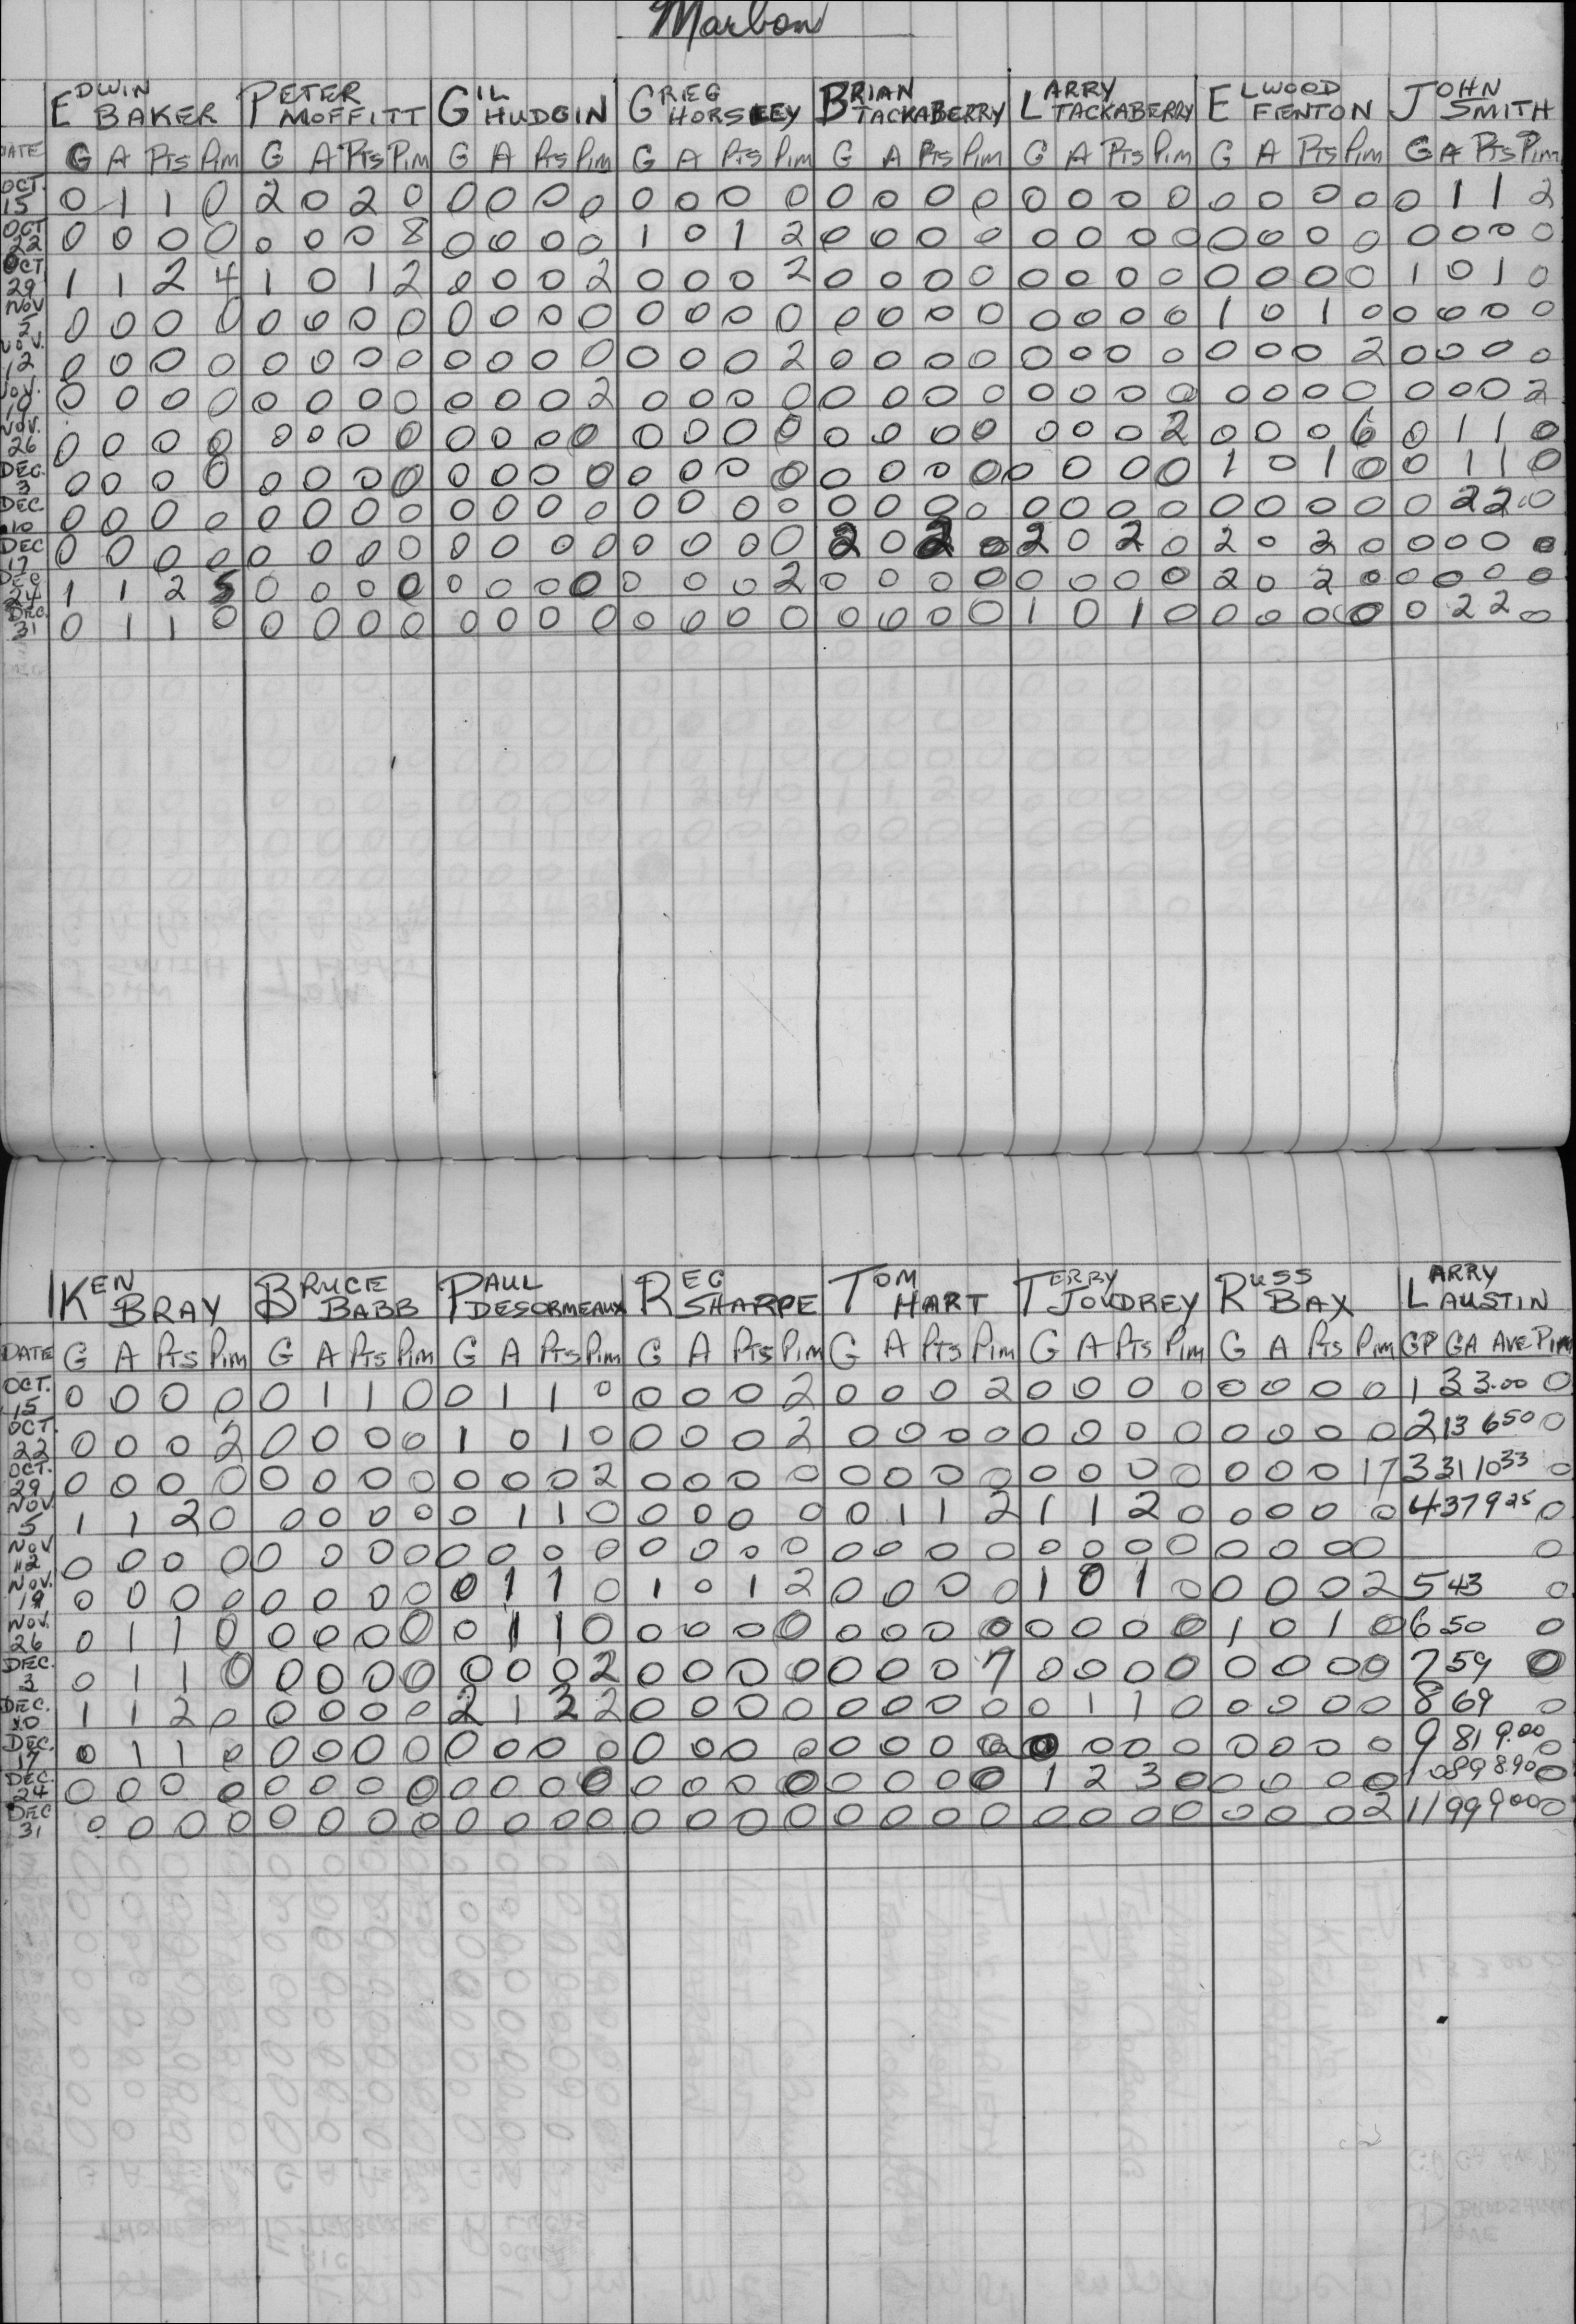 Marbon
EDWIN BAKER PETER MOFFITT GIL HUDGIN GREG HORSLEY BRIAN TACKABERRY LARRY TACKABERRY ELWOOD FENTON JOHN SMITH
DATE G A Pts Pim G A Pts Pim G A Pts Pim G A Pts Pim G A Pts Pim G A Pts Pim G A Pts Pim G A Pts Pim
OCT. 15 0 1 1 0 2 0 2 0 0 0 0 0 0 0 0 0 0 0 0 0 0 0 0 0 0 0 0 0 0 1 1 2
OCT 22 0 0 0 0 0 0 0 8 0 0 0 0 1 0 1 2 0 0 0 0 0 0 0 0 0 0 0 0 0 0 0 0
OCT 29 1 1 2 4 1 0 1 2 0 0 0 2 0 0 0 2 0 0 0 0 0 0 0 0 0 0 0 0 1 0 1 0
NOV 5 0 0 0 0 0 0 0 0 0 0 0 0 0 0 0 0 0 0 0 0 0 0 0 0 1 0 1 0 0 0 0 0
NOV. 12 0 0 0 0 0 0 0 0 0 0 0 0 0 0 0 2 0 0 0 0 0 0 0 0 0 0 0 2 0 0 0 0
NOV. 19 0 0 0 0 0 0 0 0 0 0 0 2 0 0 0 0 0 0 0 0 0 0 0 0 0 0 0 0 0 0 0 2
NOV. 26 0 0 0 0 0 0 0 0 0 0 0 0 0 0 0 0 0 0 0 0 0 0 0 2 0 0 0 6 0 1 1 0
DEC. 3 0 0 0 0 0 0 0 0 0 0 0 0 0 0 0 0 0 0 0 0 0 0 0 0 1 0 1 0 0 1 1 0
DEC. 10 0 0 0 0 0 0 0 0 0 0 0 0 0 0 0 0 0 0 0 0 0 0 0 0 0 0 0 0 0 2 2 0
DEC 17 0 0 0 0 0 0 0 0 0 0 0 0 0 0 0 0 2 0 2 0 2 0 2 0 2 0 2 0 0 0 0 0
DEC 24 1 1 2 5 0 0 0 0 0 0 0 0 0 0 0 2 0 0 0 0 0 0 0 0 2 0 2 0 0 0 0 0
DEC. 31 0 1 1 0 0 0 0 0 0 0 0 0 0 0 0 0 0 0 0 0 1 0 1 0 0 0 0 0 0 2 2 0
KEN BRAY BRUCE BABB PAUL DESORMEAUX REG SHARPE TOM HART TERRY JOUDREY RUSS BAX LARRY AUSTIN
DATE G A Pts Pim G A Pts Pim G A Pts Pim G A Pts Pim G A Pts Pim G A Pts Pim G A Pts Pim GP GA AVE Pim
OCT. 15 0 0 0 0 0 1 1 0 0 1 1 0 0 0 0 2 0 0 0 2 0 0 0 0 0 0 0 0 1 3 3.00 0
OCT 22 0 0 0 2 0 0 0 0 1 0 1 0 0 0 0 2 0 0 0 0 0 0 0 0 0 0 0 0 2 13 6 50 0
OCT. 29 0 0 0 0 0 0 0 0 0 0 0 2 0 0 0 0 0 0 0 0 0 0 0 0 0 0 0 17 3 31 10 33 0
NOV 5 1 1 2 0 0 0 0 0 0 1 1 0 0 0 0 0 0 1 1 2 1 1 2 0 0 0 0 0 4 37 9 25 0
NOV 12 0 0 0 0 0 0 0 0 0 0 0 0 0 0 0 0 0 0 0 0 0 0 0 0 0 0 0 0 0
NOV. 19 0 0 0 0 0 0 0 0 0 1 1 0 1 0 1 2 0 0 0 0 1 0 1 0 0 0 0 2 5 43 0
NOV. 26 0 1 1 0 0 0 0 0 0 1 1 0 0 0 0 0 0 0 0 0 0 0 0 0 1 0 1 0 6 50 0
DEC. 3 0 1 1 0 0 0 0 0 0 0 0 2 0 0 0 0 0 0 0 7 0 0 0 0 0 0 0 0 7 59 0
DEC. 10 1 1 2 0 0 0 0 0 2 1 3 2 0 0 0 0 0 0 0 0 0 1 1 0 0 0 0 0 8 69 0
DEC. 17 0 1 1 0 0 0 0 0 0 0 0 0 0 0 0 0 0 0 0 0 0 0 0 0 0 0 0 0 9 81 9.00 0
DEC 24 0 0 0 0 0 0 0 0 0 0 0 0 0 0 0 0 0 0 0 0 1 2 3 0 0 0 0 0 10 89 8.90 0
DEC 31 0 0 0 0 0 0 0 0 0 0 0 0 0 0 0 0 0 0 0 0 0 0 0 0 0 0 0 2 11 99 9 00 0